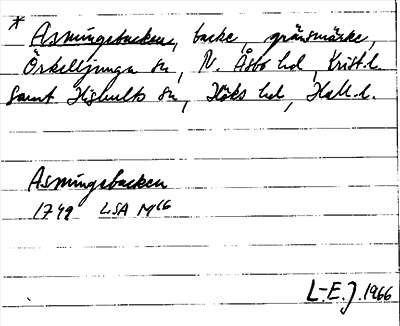 * Asmingsbacken, backe gränsmärke,
Örkelljunga sn, N. Åsbo hd, Krist.l.
samt Hishults sn, Höks hd, Hall.l.
Asmingsbacken
1749 LSA M16
L-E.J. 1966